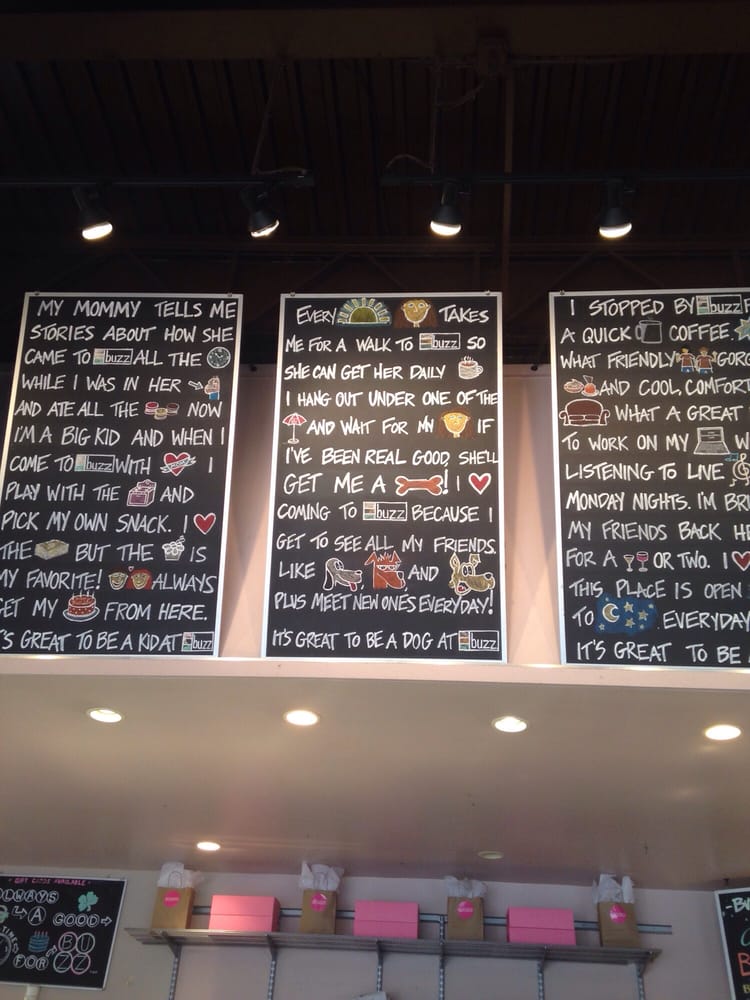 MY MOMMY TELLS ME
STORIES ABOUT HOW SHE
CAME TO buzz ALL THE
WHILE I WAS IN HER
AND ATE ALL THE NOW
I'M A BIG KID AND WHEN I
COME TO buzz WITH I
PLAY WITH THE AND
PICK MY OWN SNACK. I
THE BUT THE IS
MY FAVORITE! ALWAYS
GET MY FROM HERE.
'S GREAT TO BE A KID AT buzz
EVERY TAKES
ME FOR A WALK TO buzz SO
SHE CAN GET HER DAILY
I HANG OUT UNDER ONE OF THE
AND WAIT FOR MY IF
I'VE BEEN REAL GOOD, SHE'LL
GET ME A ! I
COMING TO buzz BECAUSE I
GET TO SEE ALL MY FRIENDS.
LIKE AND
PLUS MEET NEW ONES EVERYDAY!
IT'S GREAT TO BE A DOG AT buzz
I STOPPED BY buzz
A QUICK COFFEE.
WHAT FRIENDLY GORG
AND COOL, COMFORT
WHAT A GREAT
TO WORK ON MY W
LISTENING TO LIVE
MONDAY NIGHTS. I'M BR
MY FRIENDS BACK HE
FOR A OR TWO. I
THIS PLACE IS OPEN
TO EVERYDAY
IT'S GREAT TO BE
GIFT CARDS AVAILABLE
ALWAYS
A GOOD
FOR BUZZ
BU